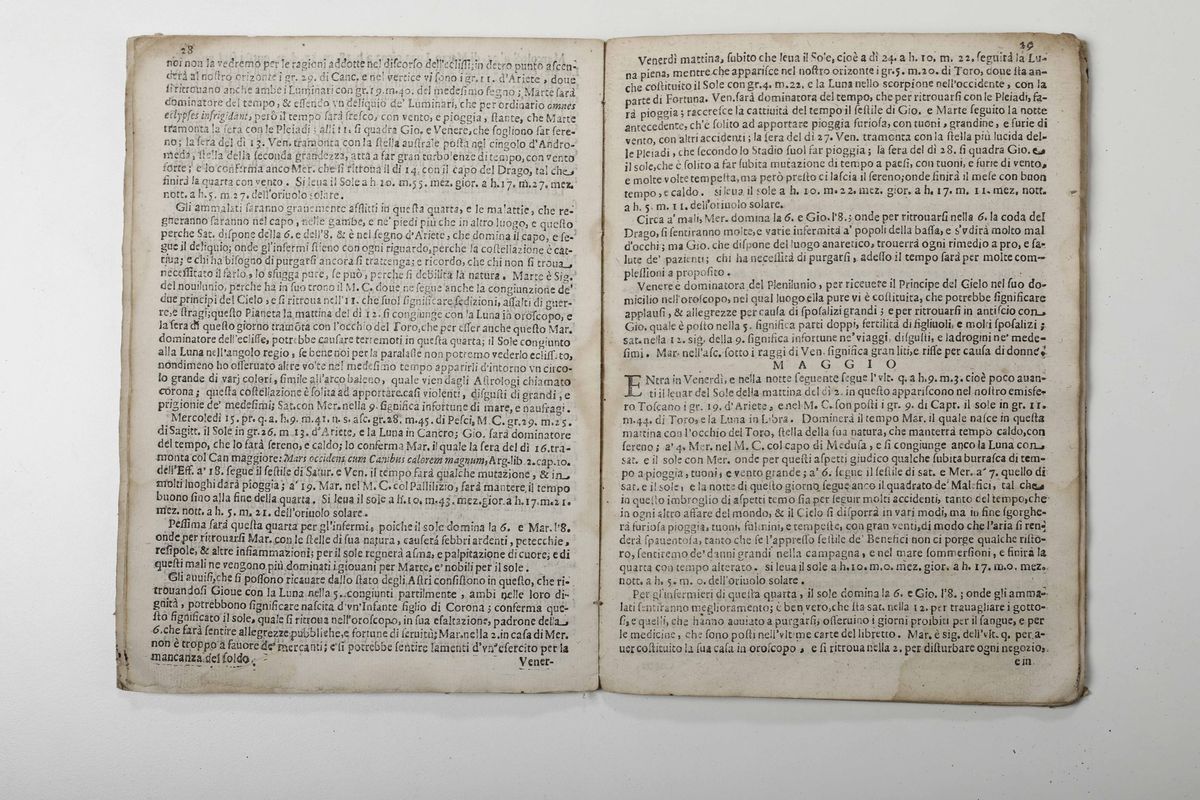 28
noi non la vedremo per le ragioni addotte nel discorso dell'eclissi; in detto punto ascen-
derà al nostro orizonte i gr. 29. di Canc. e nel vertice vi sono i gr. 11. d'Ariete, doue
si ritrouano anche ambe i Luminari con gr. 19. m. 40. del medesimo segno; Marte sarà
dominatore del tempo, & essendo vn deliquio de' Luminari, che per ordinario omnes
eclypses infrigidant, però il tempo sarà fresco, con vento, e pioggia, stante, che Marte
tramonta la sera con le Pleiadi; alli 11. si quadra Gio. e Venere, che sogliono far sere-
no; la sera di 13. Ven. tramonta con la stella australe posta nel cingolo d'Andro-
meda, stella della seconda grandezza, atta a far gran turbolenze di tempo, con vento
forte; e lo conferma anco Mer. che si ritroua il dì 14. con il capo del Drago, tal che
finirà la quarta con vento. Si leua il Sole a h 10. m. 55. mez. gior. a h. 17. m. 27. mez.
nott. a h. 5. m. 27. dell'oriuolo solare.
Gli ammalati saranno grauemente afflitti in questa quarta, e le malattie, che re-
gneranno saranno nel capo, nelle gambe, e ne' piedi più che in altro luogo, e questo
perche Sat. dispone della 6. e dell'8, & è nel segno d'Ariete, che domina il capo, e se-
gue il deliquio; onde gl'infermi stieno con ogni riguardo, perche la costellazione è cat-
tiua; e chi ha bisogno di purgarsi ancora si trattenga; e ricordo, che chi non si troua
necessitato il farlo, lo sfugga pure, se può, perche si debilita la natura. Marte è Sig.
del nouilunio, perche ha in suo trono il M. C. doue ne segue anche la congiunzione de'
due principi del Cielo, e si ritroua nell'11. che suol significare sedizioni, assalti di guer-
re, e stragi; questo Pianeta la mattina del dì 12. si congiunge con la Luna in oroscopo, e
la sera di questo giorno tramonta con l'occhio del Toro, che per esser anche questo Mar.
dominatore dell'eclisse, potrebbe causare terremoti in questa quarta; il Sole congiunto
alla Luna nell'angolo regio, se bene noi per la paralasse non potremo vederlo eclissato,
nondimeno ho osseruato altre volte nel medesimo tempo apparirli d'intorno vn circo-
lo grande di varj colori, simile all'arco baleno, quale vien dagli Astrologi chiamato
corona; questa costellazione è solita ad apportare casi violenti, disgusti di grandi, e
prigionie de' medesimi; Sat. con Mer. nella 9. significa infortune di mare, e naufragi.
Mercoledì 15. pr. q. a. h. 9. m. 41. n. s. asc. gr. 28. m. 45. di Pesci, M C. gr. 29. m. 25.
di Sagitt. il Sole in gr. 26. m 13. d'Ariete, e la Luna in Cancro; Gio. sarà dominatore
del tempo, che lo farà sereno, e caldo; lo conferma Mar. il quale la sera del dì 16. tra-
monta col Can maggiore: Mars occident cum Canibus calorem magnum, Arg. lib 2. cap. 10.
dell'Eff. a' 18. segue il sestile di Satur. e Ven. il tempo farà qualche mutazione, & in
molti luoghi darà pioggia; a' 19. Mar. nel M. C. col Pallilizio, farà mantere il tempo
buono sino alla fine della quarta. Si leua il sole a h. 10. m. 43. mez. gior. a h. 17. m. 21.
mez. nott. a h. 5. m. 21. dell'oriuolo solare.
Pessima sarà questa quarta per gl'infermi, poiche il sole domina la 6. e Mar. l'8.
onde per ritrouarsi Mar. con le stelle di sua natura, causerà febbri ardenti, petecchie,
resipole, & altre infiammazioni; per il sole regnerà asma, e palpitazione di cuore; e di
questi mali ne vengono più dominati i giouani per Marte, e nobili per il sole.
Gli auuisi, che si possono ricauare dallo stato degli Astri consistono in questo, che ri-
trouandosi Gioue con la Luna nella 5. congiunti partilmente, ambi nelle loro di-
gnità, potrebbono significare nascita d'vn'Infante figlio di Corona; conferma que-
sto significato il sole, quale si ritroua nell'oroscopo, in sua esaltazione, padrone della
6. che farà sentire allegrezze pubbliche, e fortune di seruitù; Mar. nella 2. in casa di Mer.
non è troppo a fauore de' mercanti; e si potrebbe sentire lamenti d'vn'esercito per la
mancanza del soldo.
Vener-
29
Venerdì mattina, subito che leua il Sole, cioè a dì 24. a h. 10. m. 22, seguirà la Lu-
na piena, mentre che apparisce nel nostro orizonte i gr. 5. m. 20. di Toro, doue sta an-
che costituito il Sole con gr. 4. m. 22. e la Luna nello scorpione nell'occidente, con la
parte di Fortuna. Ven. sarà dominatora del tempo, che per ritrouarsi con le Pleiadi, fa-
rà pioggia; raccresce la cattiuità del tempo il sestile di Gio. e Marte seguito la notte
antecedente, ch'è solito ad apportare pioggia furiosa, con tuoni, grandine, e furie di
vento, con altri accidenti; la sera del dì 27. Ven. tramonta con la stella più lucida del-
le Pleiadi, che secondo lo Stadio suol far pioggia; la sera del dì 28. si quadra Gio. e
il sole, che è solito a far subita mutazione di tempo a paesi, con tuoni, e furie di vento,
e molte volte tempesta, ma però presto ci lascia il sereno; onde finirà il mese con buon
tempo, e caldo. si leua il sole a h. 10. m. 22. mez. gior. a h. 17. m. 11. mez, nott.
a h. 5. m. 11. dell'oriuolo solare.
Circa a' mali, Mer. domina la 6. e Gio. l'8.; onde per ritrouarsi nella 6. la coda del
Drago, si sentiranno molte, e varie infermità a' popoli della bassa, e s'vdirà molto mal
d'occhi; ma Gio. che dispone del luogo anaretico, trouerrà ogni rimedio a pro, e sa-
lute de' pazienti; chi ha necessità di purgarsi, adesso il tempo sarà per molte com-
plessioni a proposito.
Venere è dominatora del Plenilunio, per riceuere il Principe del Cielo nel suo do-
micilio nell'oroscopo, nel qual luogo ella pure vi è costituita, che potrebbe significare
applausi, & allegrezze per causa di sposalizi grandi; e per ritrouarsi in antiscio con
Gio. quale è posto nella 5. significa parti doppi, fertilità di figliuoli, e molti sposalizi;
sat. nella 12. sig. della 9. significa infortune ne' viaggi, disgusti, e ladrogini ne' mede-
simi. Mar. nell'asc. sotto i raggi di Ven. significa gran liti, e risse per causa di donne.
MAGGIO
ENtra in Venerdì, e nella notte seguente segue l'vlt. q. a h. 9. m. 3. cioè poco auan-
ti il leuar del Sole della mattina del dì 2. in questo appariscono nel nostro emisfe-
ro Toscano i gr. 19. d'Ariete, e nel M. C. son posti i gr. 9. di Capr. il sole in gr. 11.
m. 44. di Toro, e la Luna in Libra. Dominerà il tempo Mar. il quale nasce in questa
mattina con l'occhio del Toro, stella della sua natura, che manterrà tempo caldo, con
sereno; a' 4. Mer. nel M. C. col capo di Medusa, e si congiunge anco la Luna con
sat. e il sole con Mer. onde per questi aspetti giudico qualche subita burrasca di tem-
po a pioggia, tuoni, e vento grande; a' 6. segue il sestile di sat. e Mer. a' 7. quello di
sat. e il sole, e la notte di questo giorno segue anco il quadrato de' Malefici, tal che
in questo imbroglio di aspetti temo sia per seguir molti accidenti, tanto del tempo, che
in ogni altro affare del mondo, & il Cielo si disporrà in vari modi, ma in fine sgorghe-
rà furiosa pioggia, tuoni, fulmini, e tempeste, con gran venti, di modo che l'aria si ren-
derà spauentosa, tanto che se l'appresso sestile de' Benefici non ci porge qualche risto-
ro, sentiremo de' danni grandi nella campagna, e nel mare sommersioni, e finirà la
quarta con tempo alterato. si leua il sole a h. 10. m. 0. mez. gior. a h. 17. m. 0. mez.
nott. a h. 5. m. 0. dell'oriuolo solare.
Per gl'infermieri di questa quarta, il sole domina la 6. e Gio. l'8.; onde gli amma-
lati sentiranno meglioramento; è ben vero, che sta sat. nella 12. per trauagliare i gotto-
si, e quelli, che hanno auuiato a purgarsi, osseruino i giorni proibiti per il sangue, e per
le medicine, che sono posti nell'vltime carte del libretto. Mar. è sig. dell'vlt. q. per a-
uer costituito la sua casa in oroscopo, e si ritroua nella 2. per disturbare ogni negozio,
e in